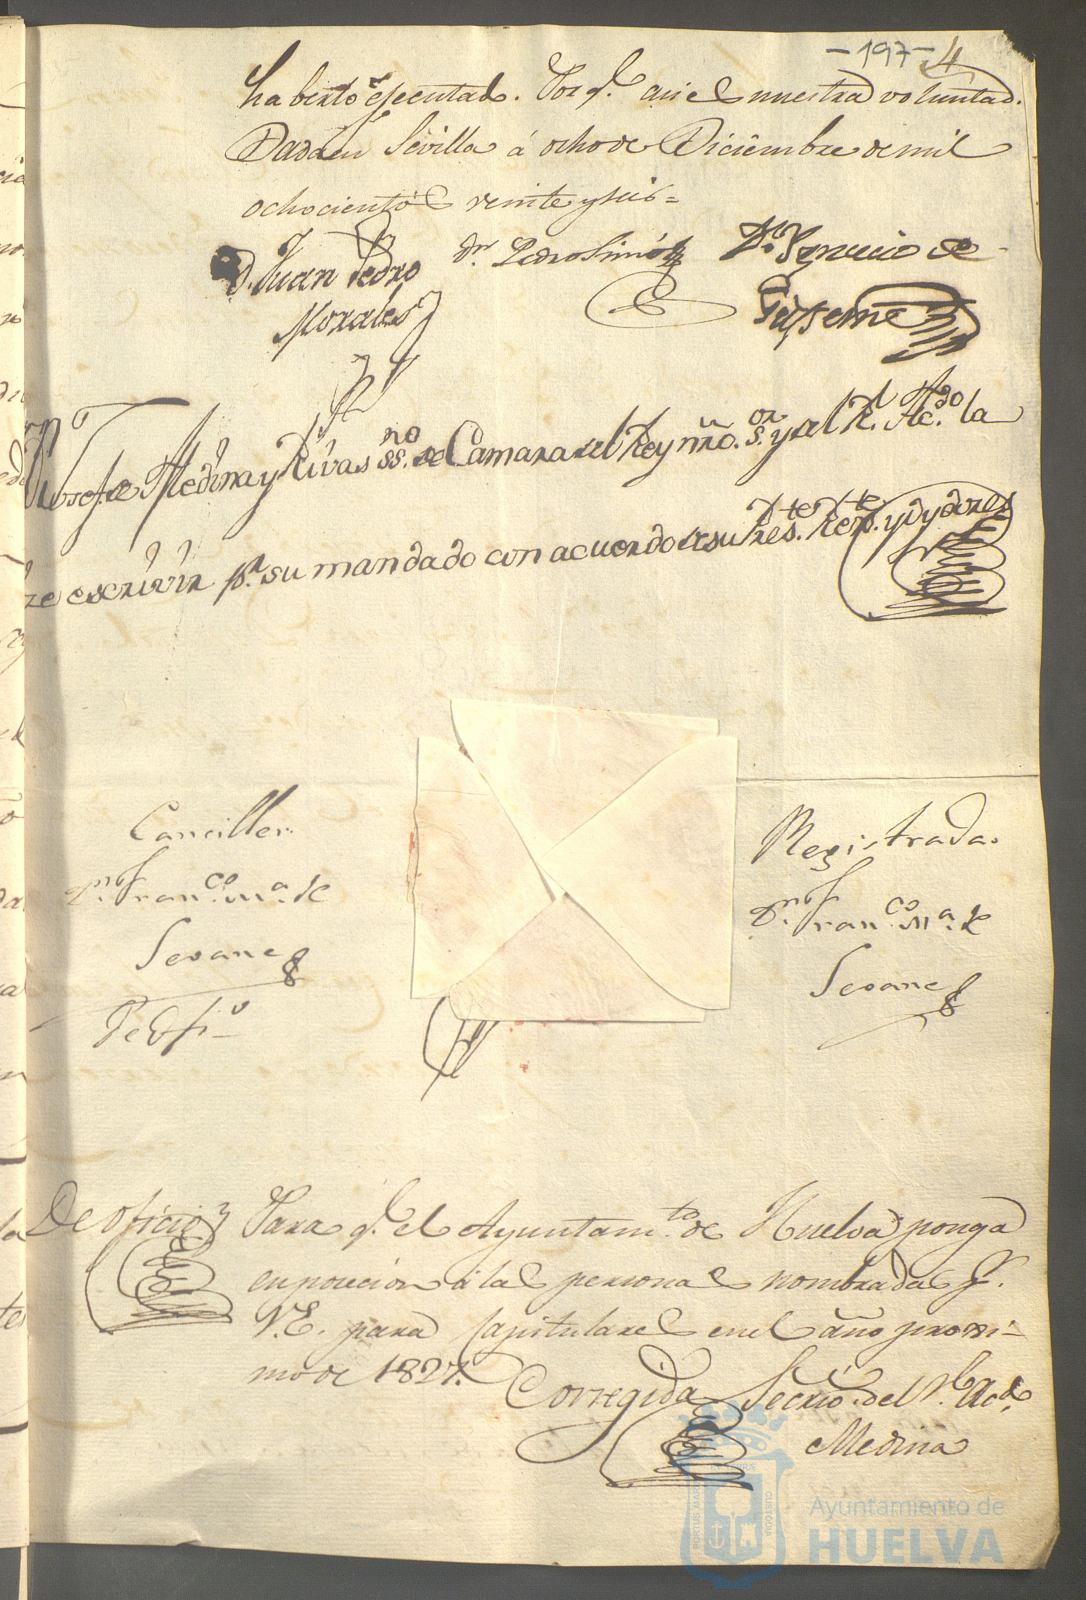 -197- 4
haberlo ejecutado. Por q.e asi es nuestra voluntad.
Dada en Sevilla á ocho de Diciembre de mil
ochocientos veinte y seis=
D. Juan Pedro
Morales
Dn. Pedro Simó
Dn. Ygnacio de
Yo
Josef de Medina y Rivas ss.no de Camara del Rey nro. s.or y del Rl. Ac.do la
ze escrivir pr. su mandado con acuerdo de su Res.te Reg.te y oydores
Canciller
Dn. Fran.co M.a de
Seoane
Registrada
Dn. Fran.co M.a de
Seoane
De oficio
Para q.e el Ayuntam.to de Huelva ponga
en posecion á las personas nombradas p.r
V.E. para Capitulares en el año proxi-
mo de 1827.
Corregida
Secrío. del Rl. Acdo.
Medina
Ayuntamiento de
HUELVA